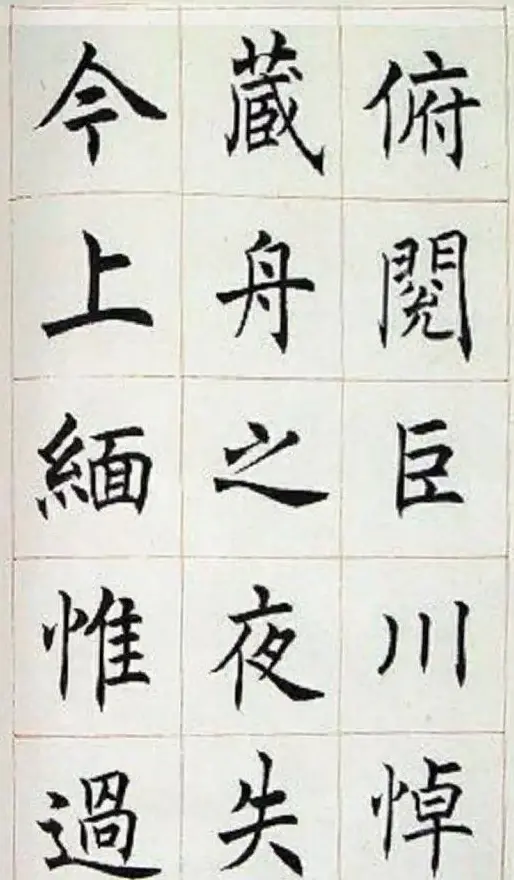 俯閱臣川悼
蔵舟之夜失
今上緬惟過